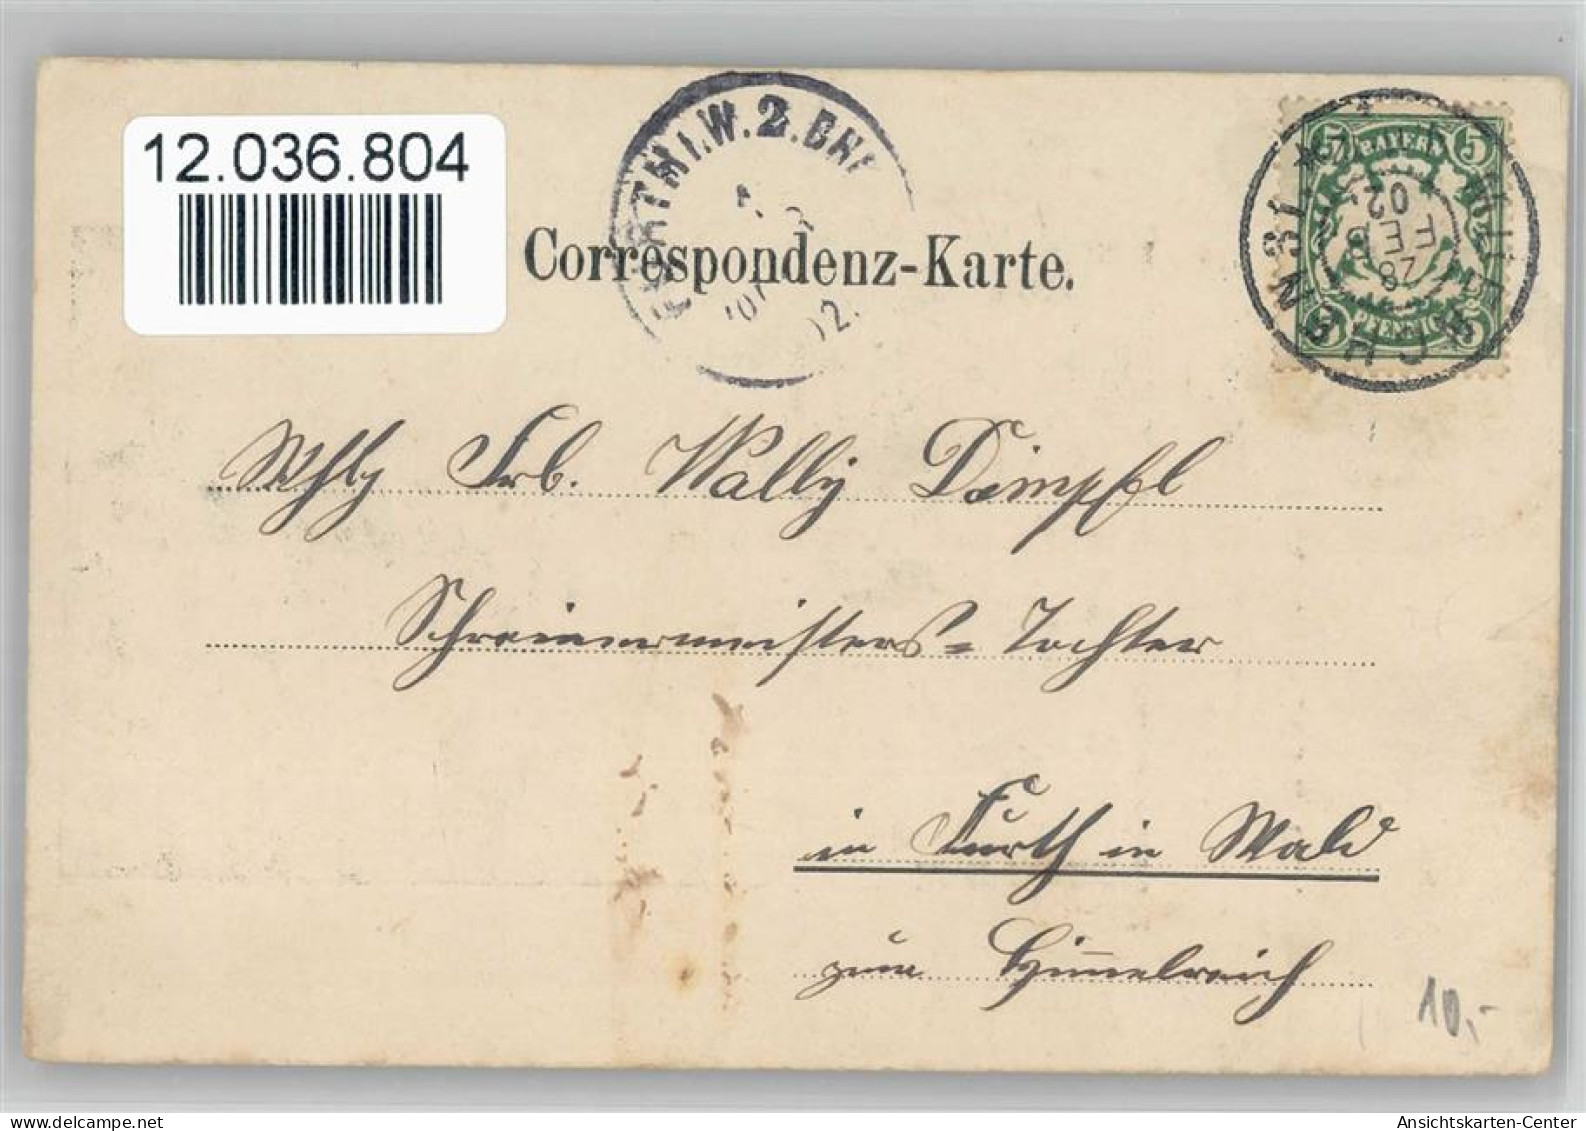 12.036.804
FURTH I.W. 2. BHF
02.
Correspondenz-Karte.
BAYERN
5 5
MÜNCHEN 31.
28
FEB
02
PFENNIG
5 5
Wohlg Frl. Wally Dimpfl
Schreinermeisters-Tochter
in Furth in Wald
zum Himmelreich
10,-
Ansichtskarten-Center